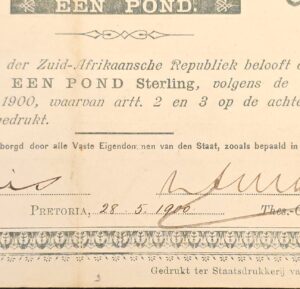 EEN POND.
der Zuid-Afrikaansche Republiek belooft
EEN POND Sterling, volgens de
1900, waarvan artt. 2 en 3 op de achte
gedrukt.
borgd door alle Vaste Eigendommen van den Staat, zooals bepaald in
PRETORIA, 28 5. 1900 Thes.-
Gedrukt ter Staatsdrukkerij va